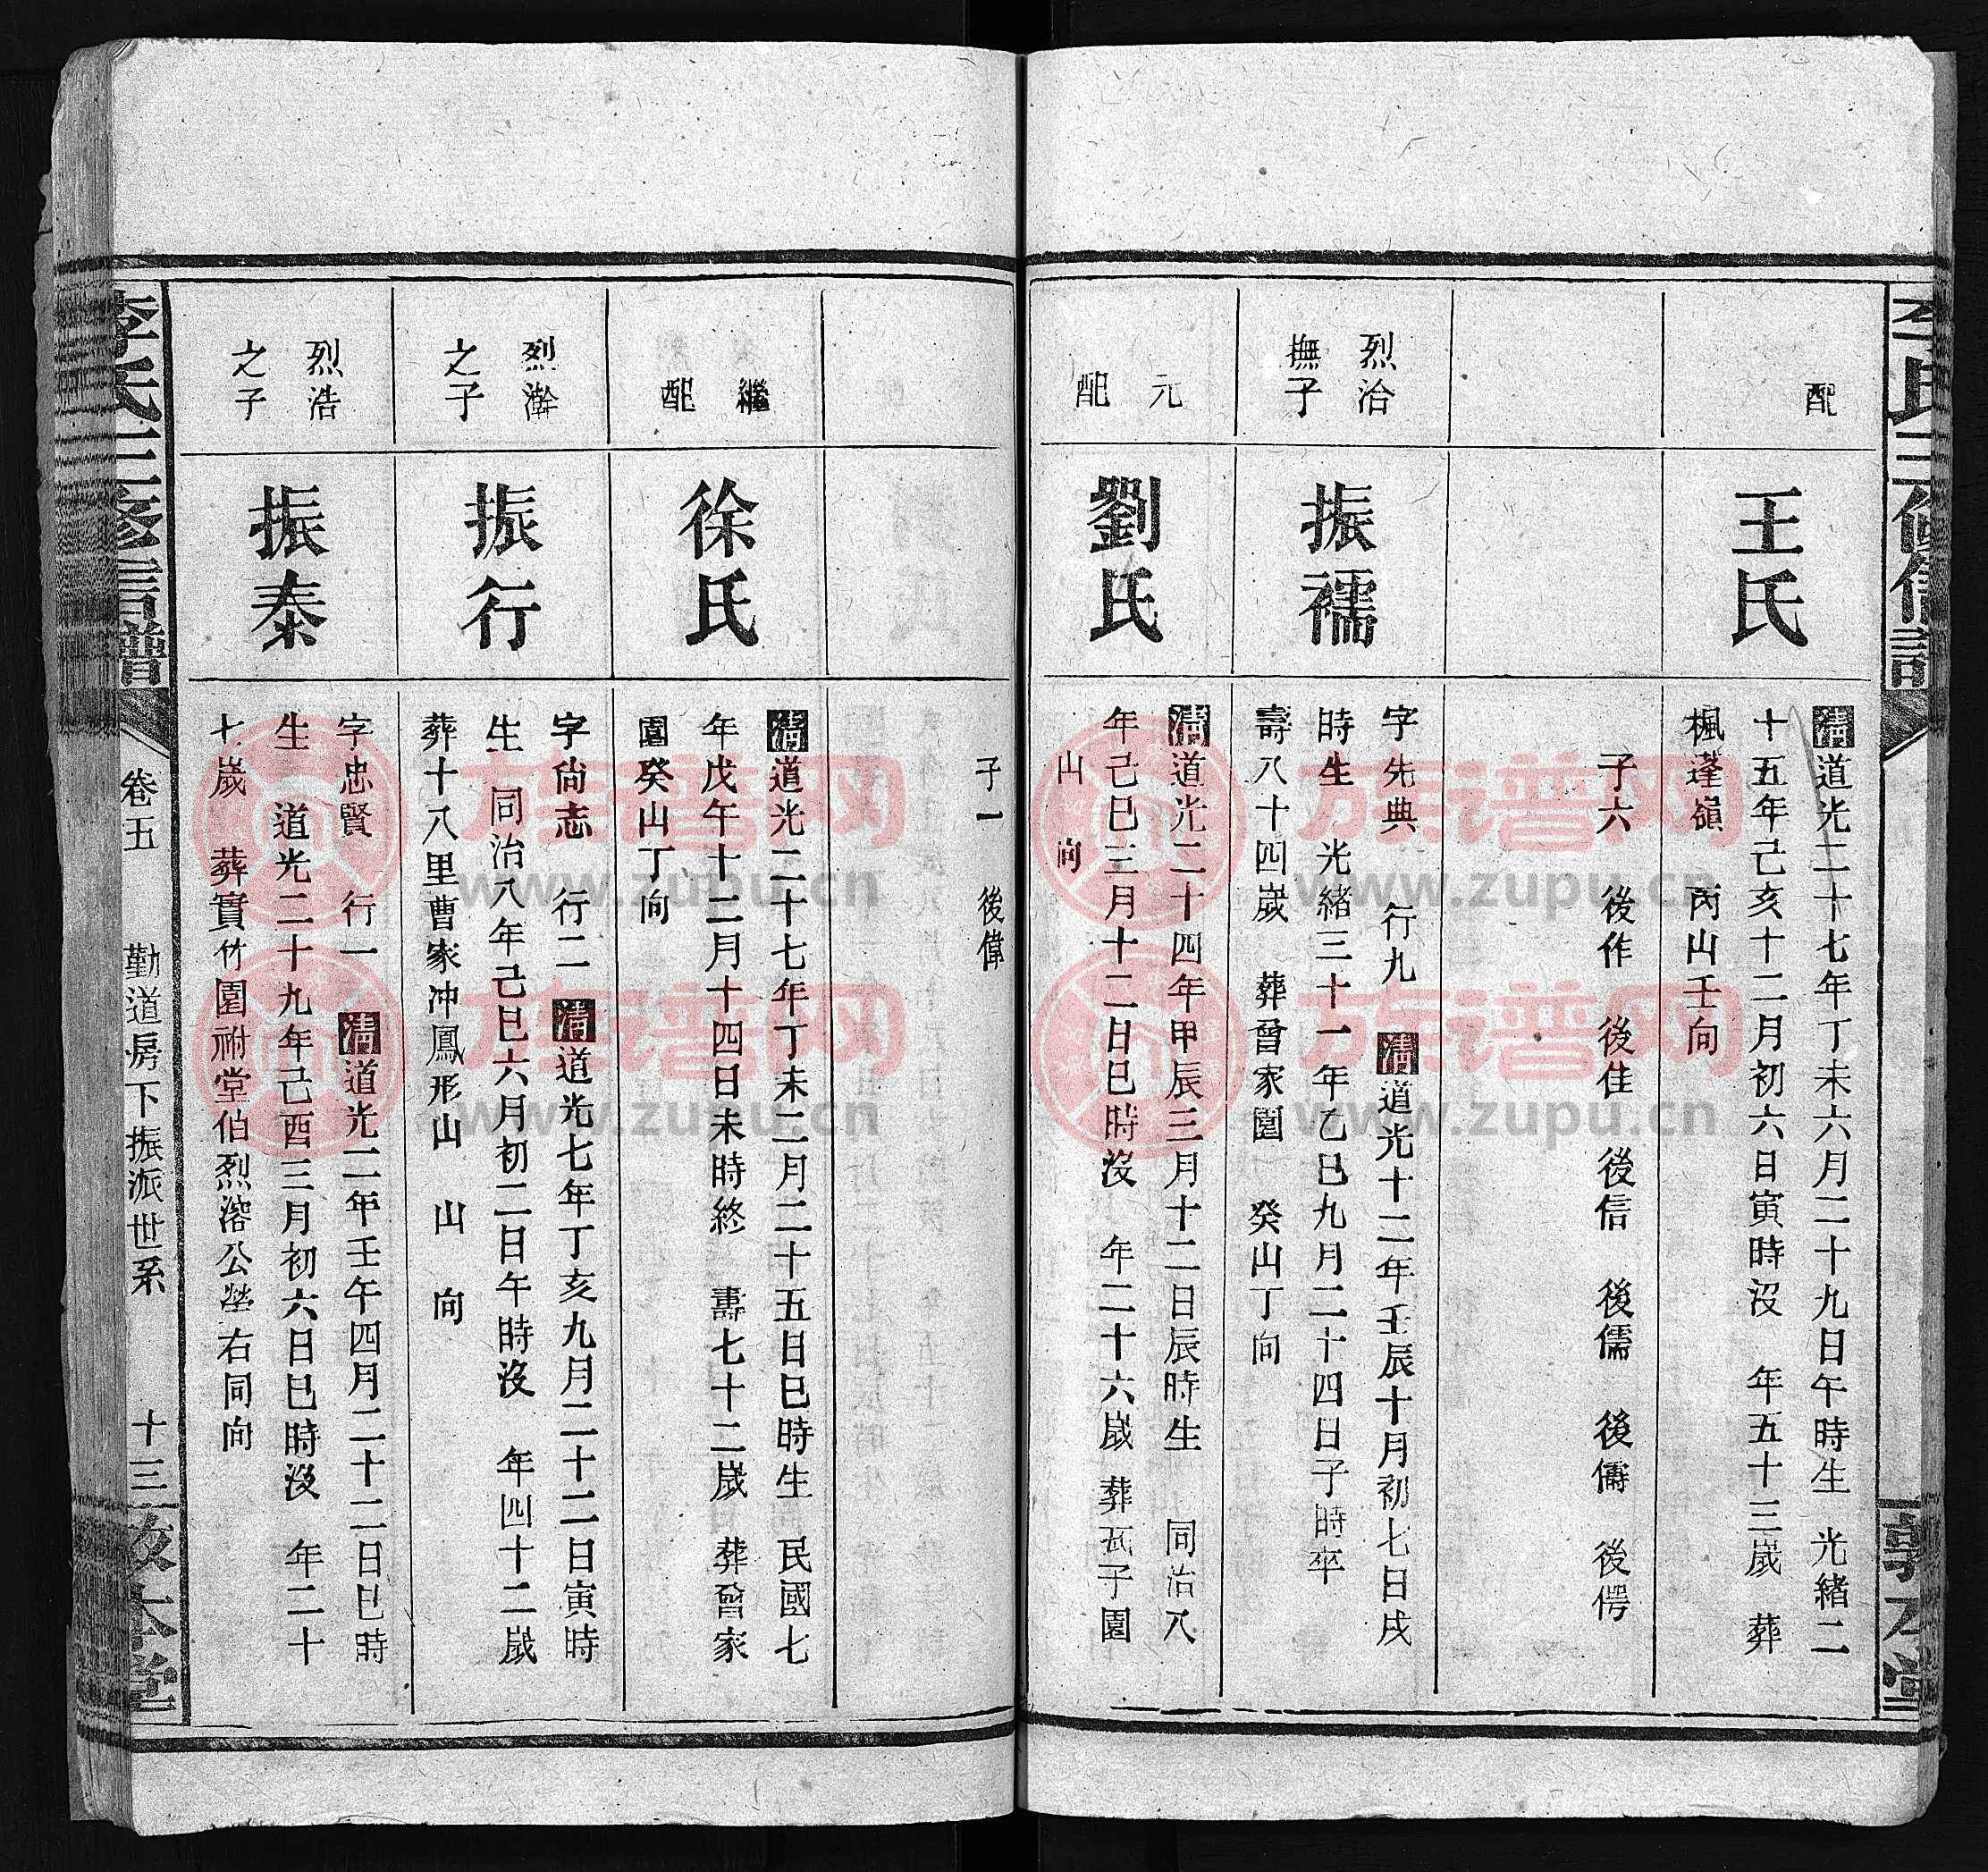 配
王氏
清道光二十七年丁未六月二十九日午時生 光緒二
十五年己亥十二月初六日寅時沒 年五十三歲 葬
楓蓬嶺 丙山壬向
子六 後作 後佳 後信 後儒 後儔 後愕
烈治
撫子
振襦
字先典 行九 清道光十二年壬辰十月初七日戌
時生 光緒三十一年乙巳九月二十四日子時卒
壽八十四歲 葬曾家園 癸山丁向
元
配
劉氏
清道光二十四年甲辰三月十二日辰時生 同治八
年己巳三月十二日巳時沒 年二十六歲 葬瓦子園
山 向
子一 後偉
繼
配
徐氏
清道光二十七年丁未二月二十五日巳時生 民國七
年戊午十二月十四日未時終 壽七十二歲 葬曾家
園癸山丁向
烈澣
之子
振行
字尙志 行二 清道光七年丁亥九月二十二日寅時
生 同治八年己巳六月初二日午時沒 年四十二歲
葬十八里曹家冲鳳形山 山 向
烈浩
之子
振泰
字忠賢 行一 清道光二年壬午四月二十二日巳時
生 道光二十九年己酉三月初六日巳時沒 年二十
七歲 葬實竹園祔堂伯烈溶公塋右同向
李氏三修信譜
卷五 勤道房下振派世系 十三
敦本堂
李氏三修信譜
敦本堂
族谱网
www.zupu.cn
族谱网
www.zupu.cn
族谱网
www.zupu.cn
族谱网
www.zupu.cn